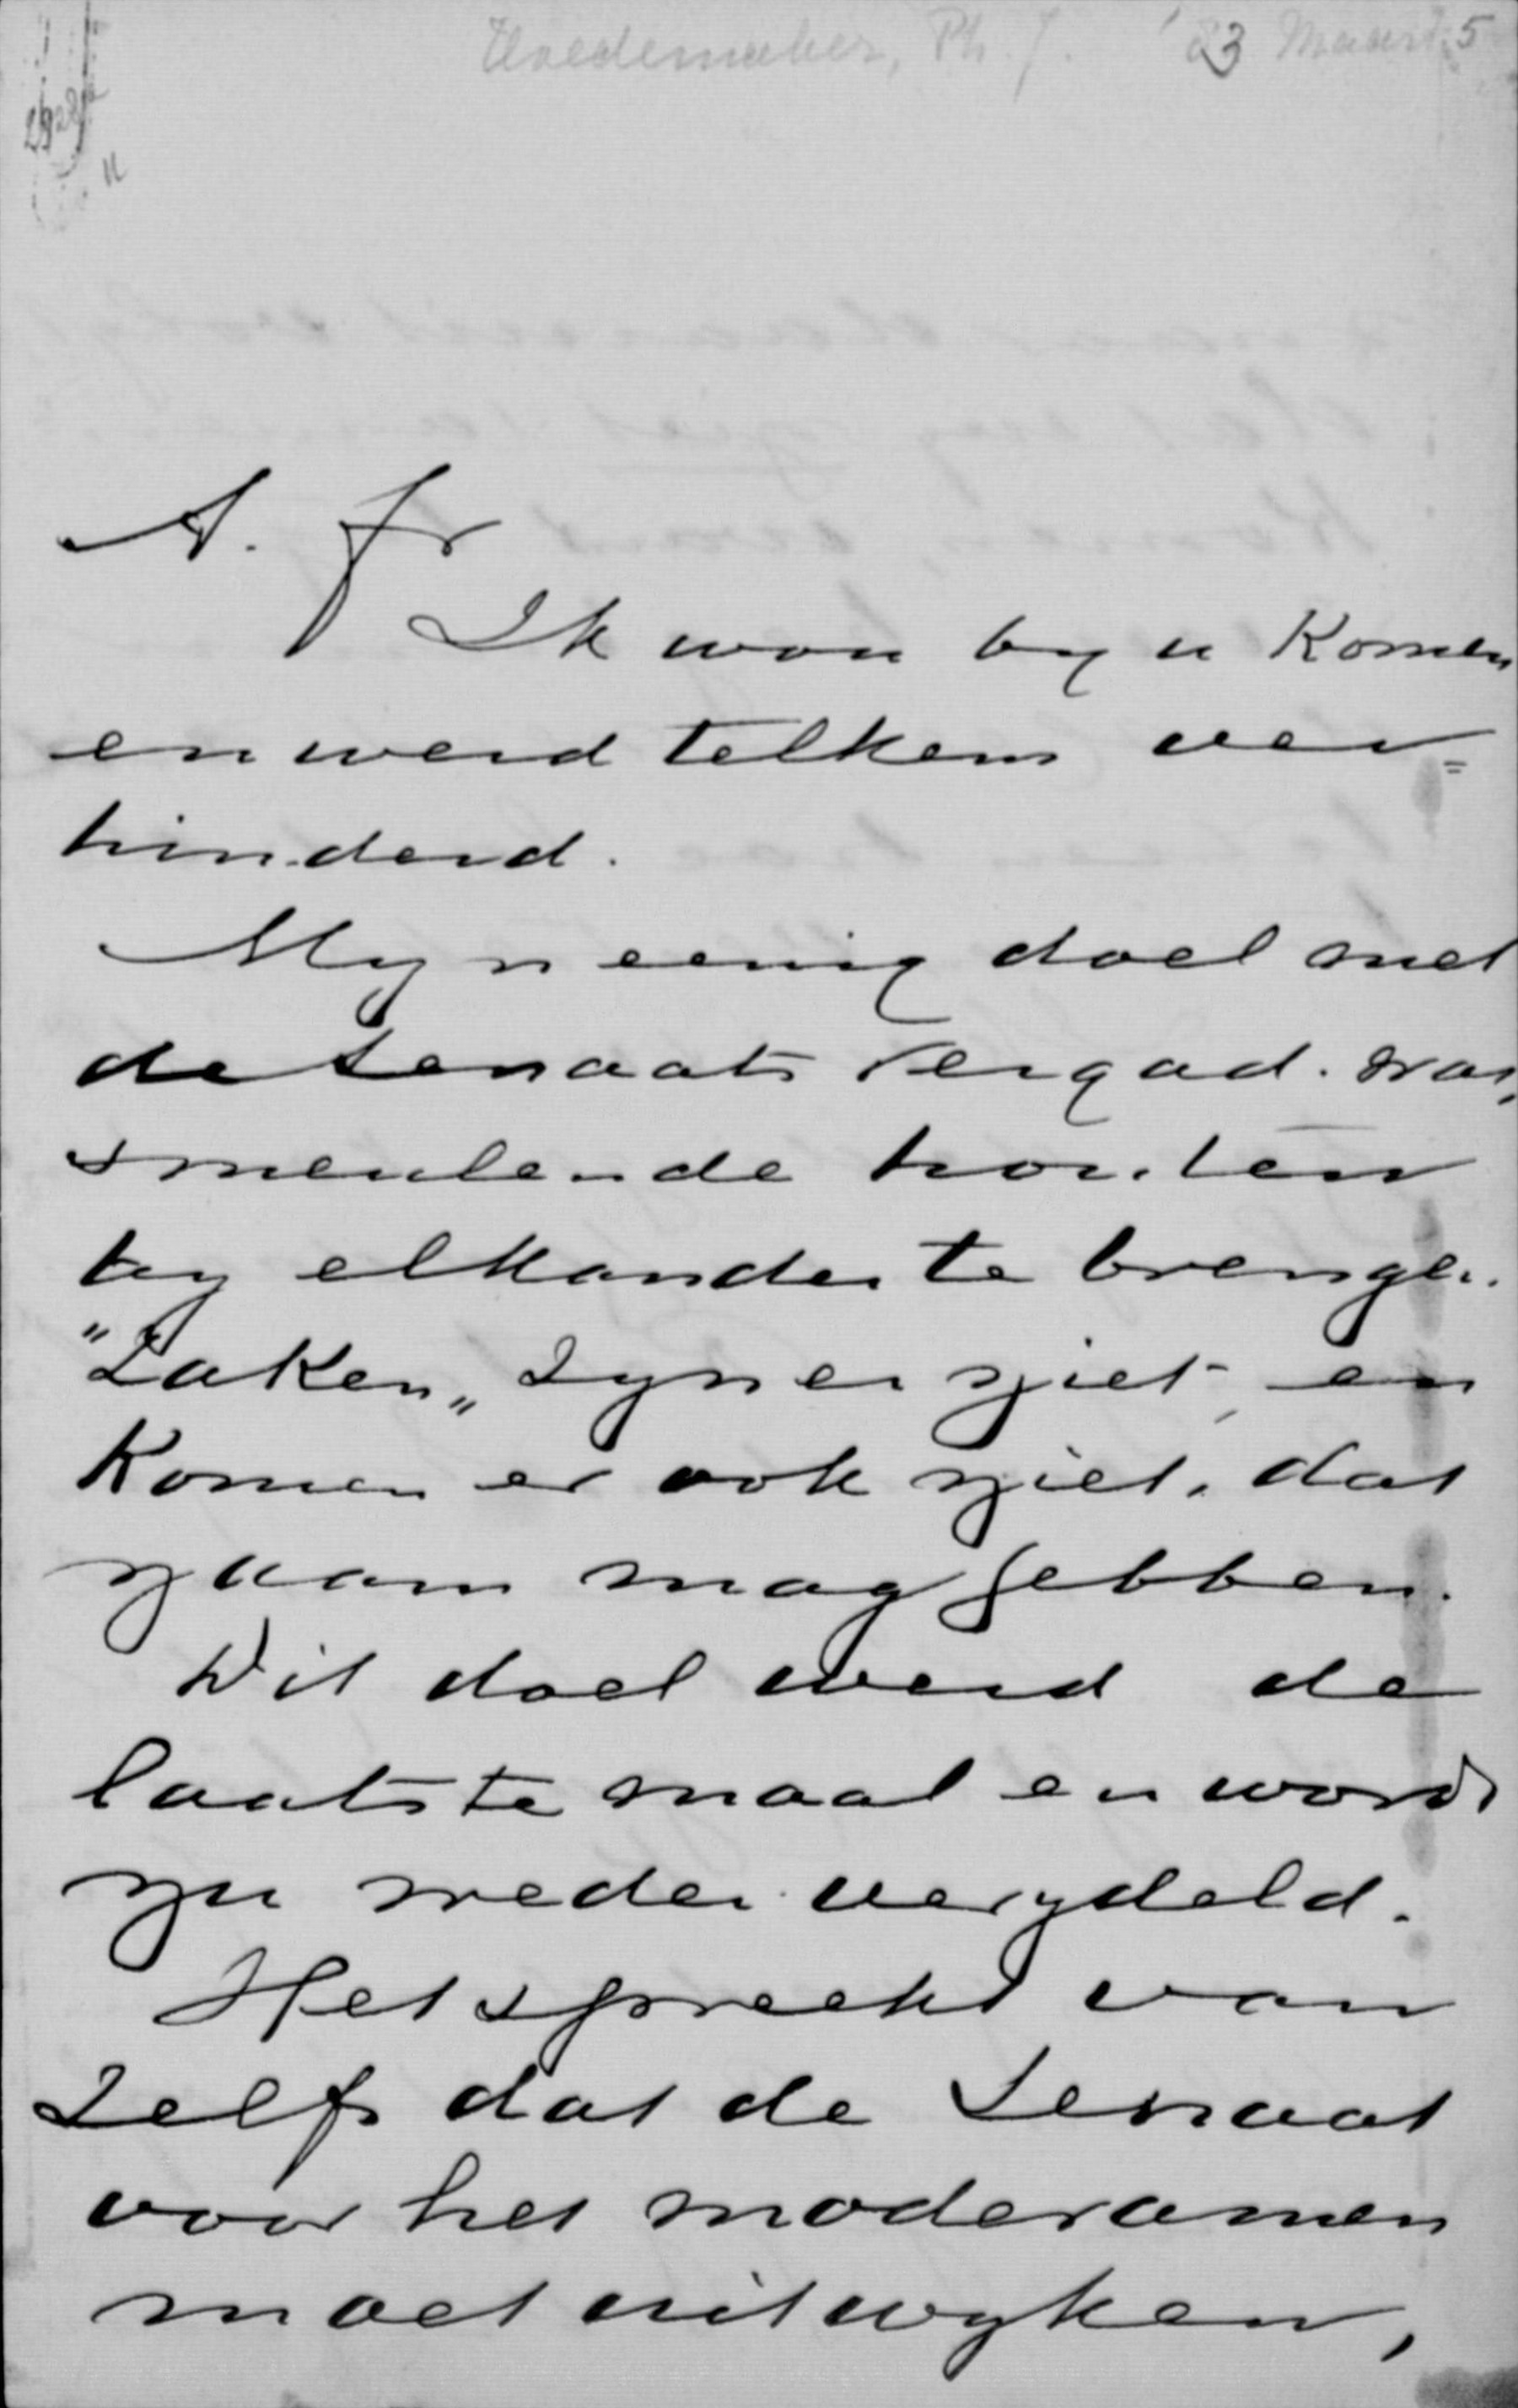 Hoedemaker, Ph. J. '83 Maart 5
A. fr
Ik wou by u Komen
en werd telkens ver=
hinderd.
Myn eenig doel met
de Senaats Vergad. was,
smeulende houten
by elkander te brengen.
"Zaken„ zyn er niet, en
Komen er ook niet, dat
naam mag hebben.
Dit doel werd de
laatste maal en wordt
nu weder verydeld.
Het spreekt van
Zelf dat de Senaat
voor het moderamen
moet uitwyken,